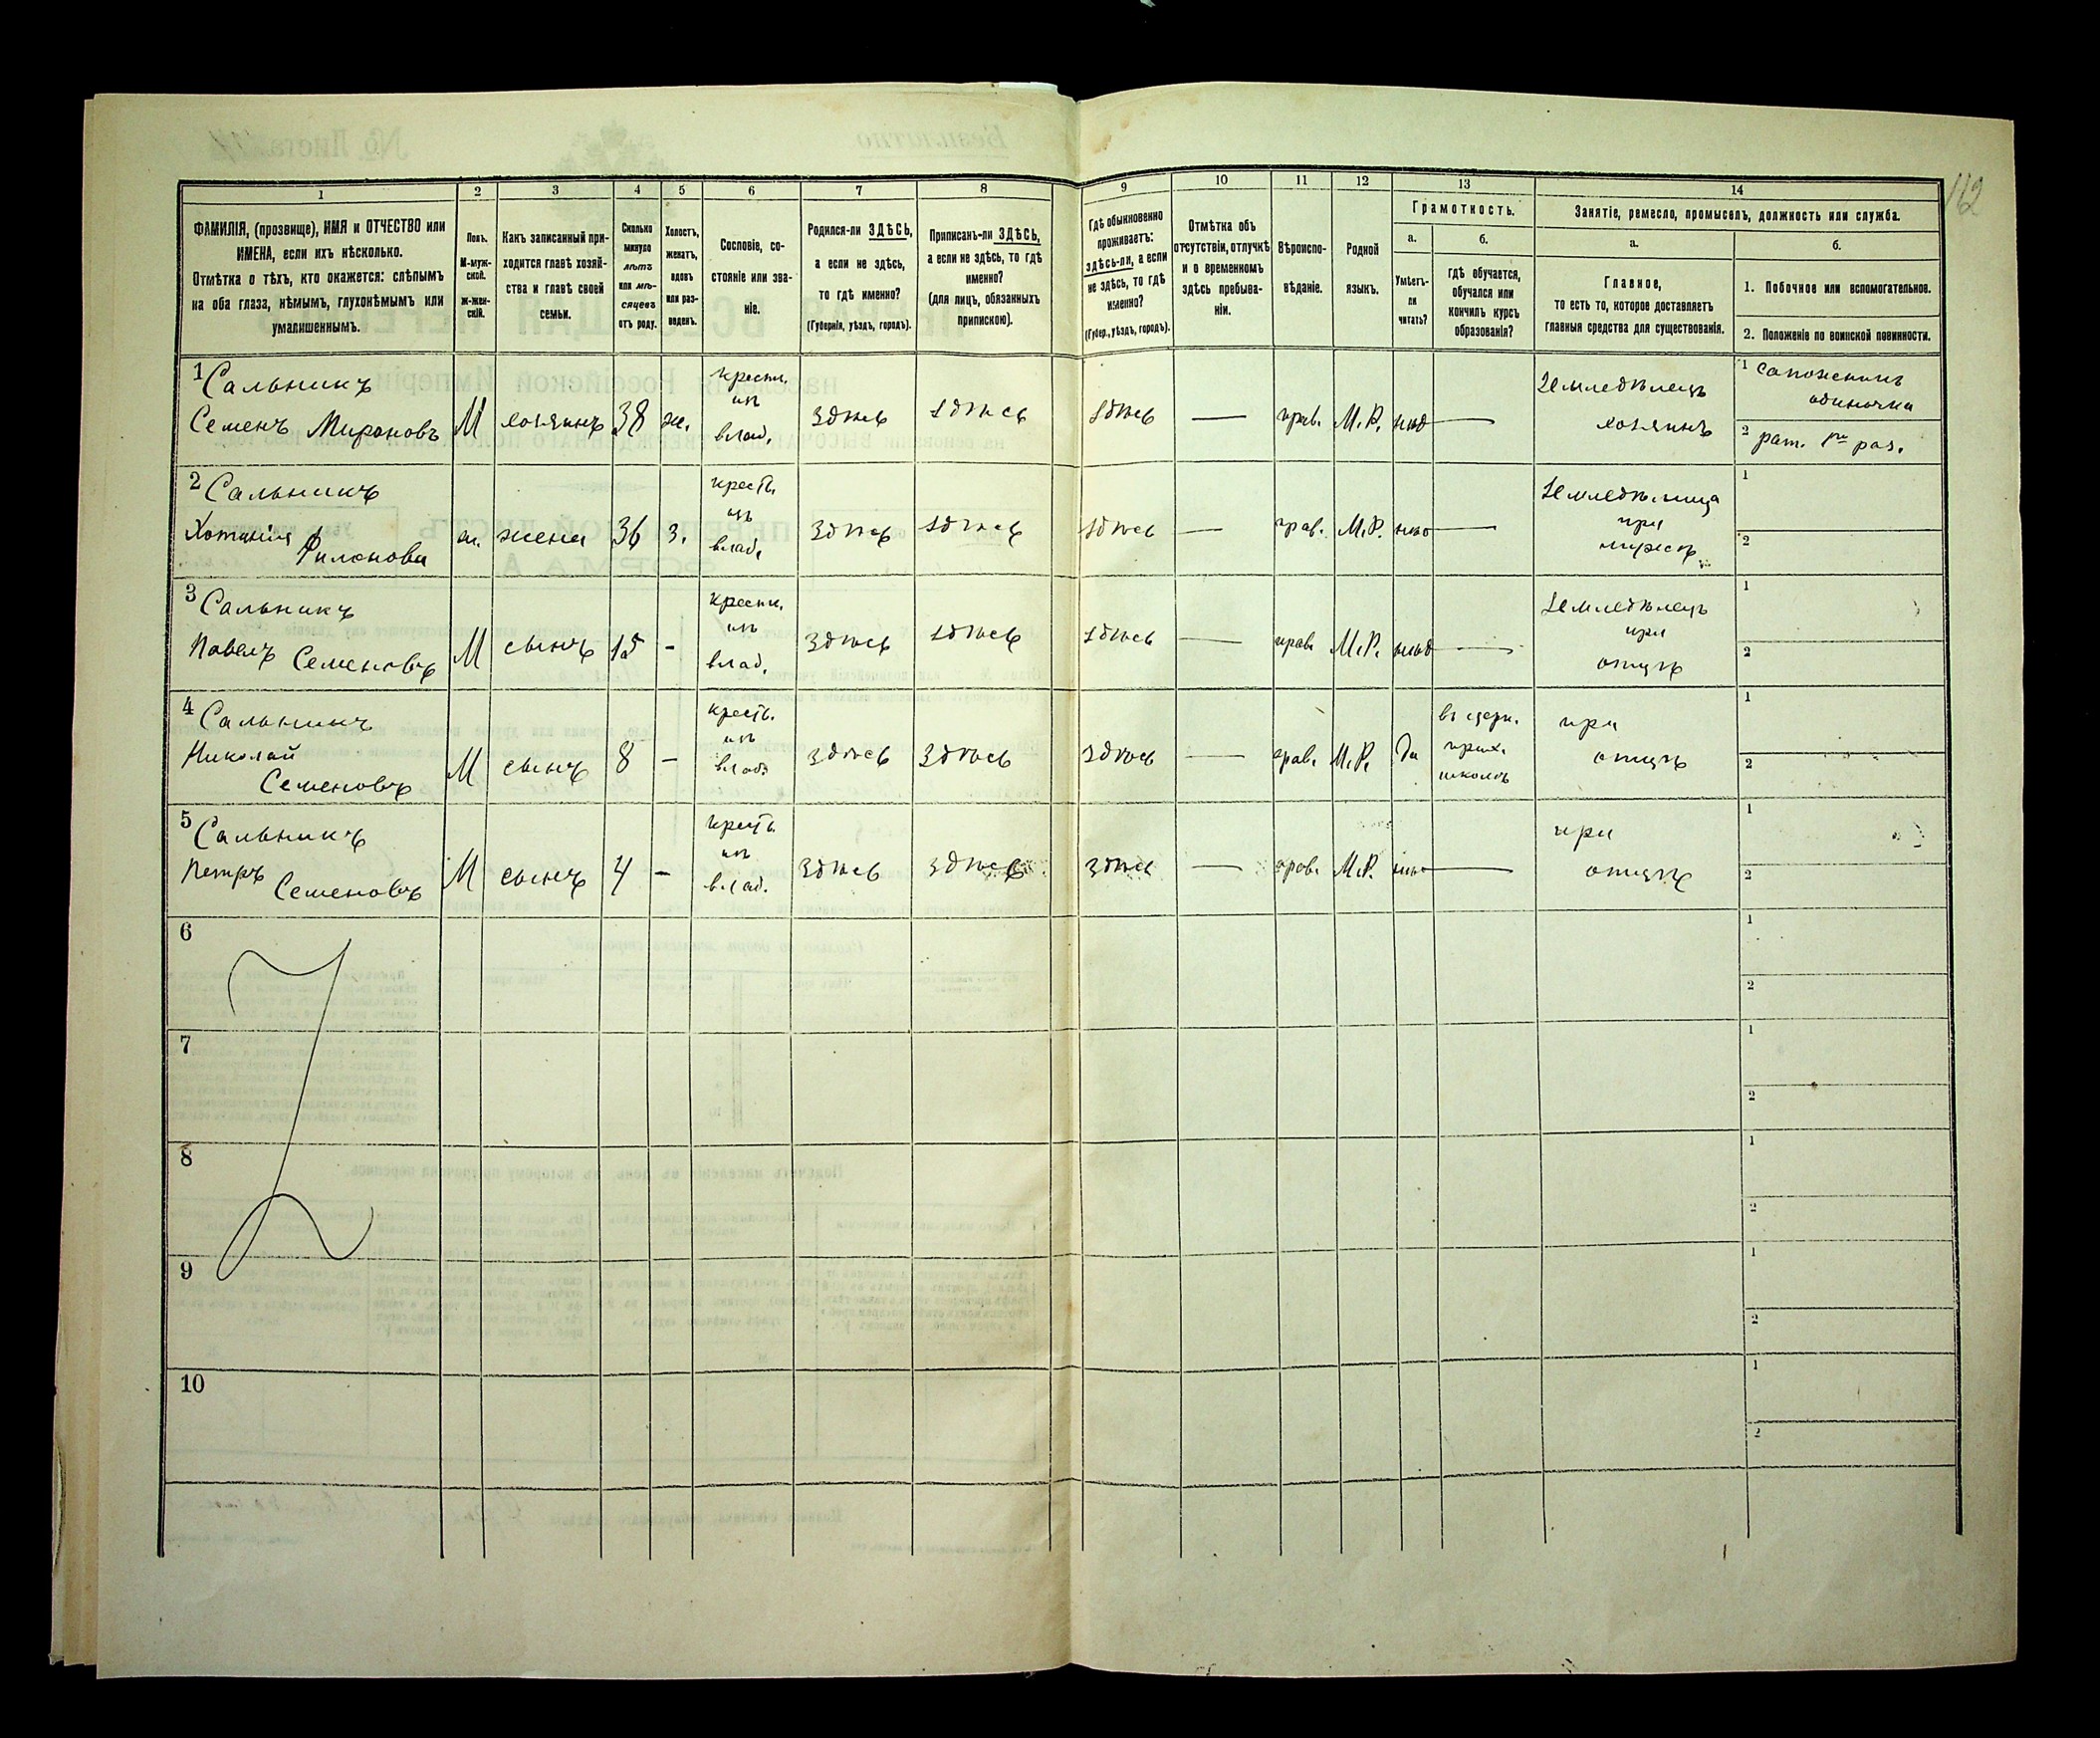 162
1
2
3
4
5
6
7
8
9
10
11
12
13
14
ФАМИЛІЯ, (прозвище), ИМЯ и ОТЧЕСТВО или
ИМЕНА, если ихъ нѣсколько.
Отмѣтка о тѣхъ, кто окажется: слѣпымъ
на оба глаза, нѣмымъ, глухонѣмымъ или
умалишеннымъ.
Полъ.
М-муж-
ской.
Ж-жен-
скій.
Какъ записанный при-
ходится главѣ хозяй-
ства и главѣ своей
семьи.
Сколько
минуло
лѣтъ
или мѣ-
сяцевъ
отъ роду.
Холостъ,
женатъ,
вдовъ
или раз-
веденъ.
Сословіе, со-
стояніе или зва-
ніе.
Родился-ли ЗДѢСЬ,
а если не здѣсь,
то гдѣ именно?
(Губернія, уѣздъ, городъ).
Приписанъ-ли ЗДѢСЬ,
а если не здѣсь, то гдѣ
именно?
(для лицъ, обязанныхъ
припискою).
Гдѣ обыкновенно
проживаетъ:
здѣсь-ли, а если
не здѣсь, то гдѣ
именно?
(Губер., уѣздъ, городъ).
Отмѣтка объ
отсутствіи, отлучкѣ
и о временномъ
здѣсь пребыва-
ніи.
Вѣроиспо-
вѣданіе.
Родной
языкъ.
Грамотность.
а.
Умѣетъ-
ли
читать?
б.
гдѣ обучается,
обучался или
кончилъ курсъ
образованія?
Занятіе, ремесло, промыселъ, должность или служба.
а.
Главное,
то есть то, которое доставляетъ
главныя средства для существованія.
б.
1. Побочное или вспомогательное.
2. Положеніе по воинской повинности.
1 Сальникъ
Семенъ Мироновъ
М
хозяинъ
38
ж.
крестн.
изъ
влад.
здѣсь
здѣсь
здѣсь
—
прав.
М.Р.
—
Земледѣлецъ
хозяинъ
1 сапожникъ
одиночка
2 рат. 1го раз.
2 Сальникъ
Хотинія
Филонова
жена
36
з.
крест.
изъ
влад.
здѣсь
здѣсь
здѣсь
—
прав.
М.Р.
—
Земледѣлица
при
1
2
3 Сальникъ
Павелъ Семеновъ
М
сынъ
15
-
крестн.
изъ
влад.
здѣсь
здѣсь
здѣсь
—
прав.
М.Р.
—
Земледѣлецъ
при
отцѣ
1
2
4 Сальникъ
Николай
Семеновъ
М
сынъ
8
—
крест.
изъ
влад.
здѣсь
здѣсь
здѣсь
—
прав.
М.Р.
да
въ церк.
прих.
школѣ
при
отцѣ
1
2
5 Сальникъ
Петръ
Семеновъ
М
сынъ
4
-
крест.
изъ
влад.
здѣсь
здѣсь
здѣсь
—
прав.
М.Р.
—
при
отцѣ
1
2
6
1
2
7
1
2
8
1
2
9
1
2
10
1
2